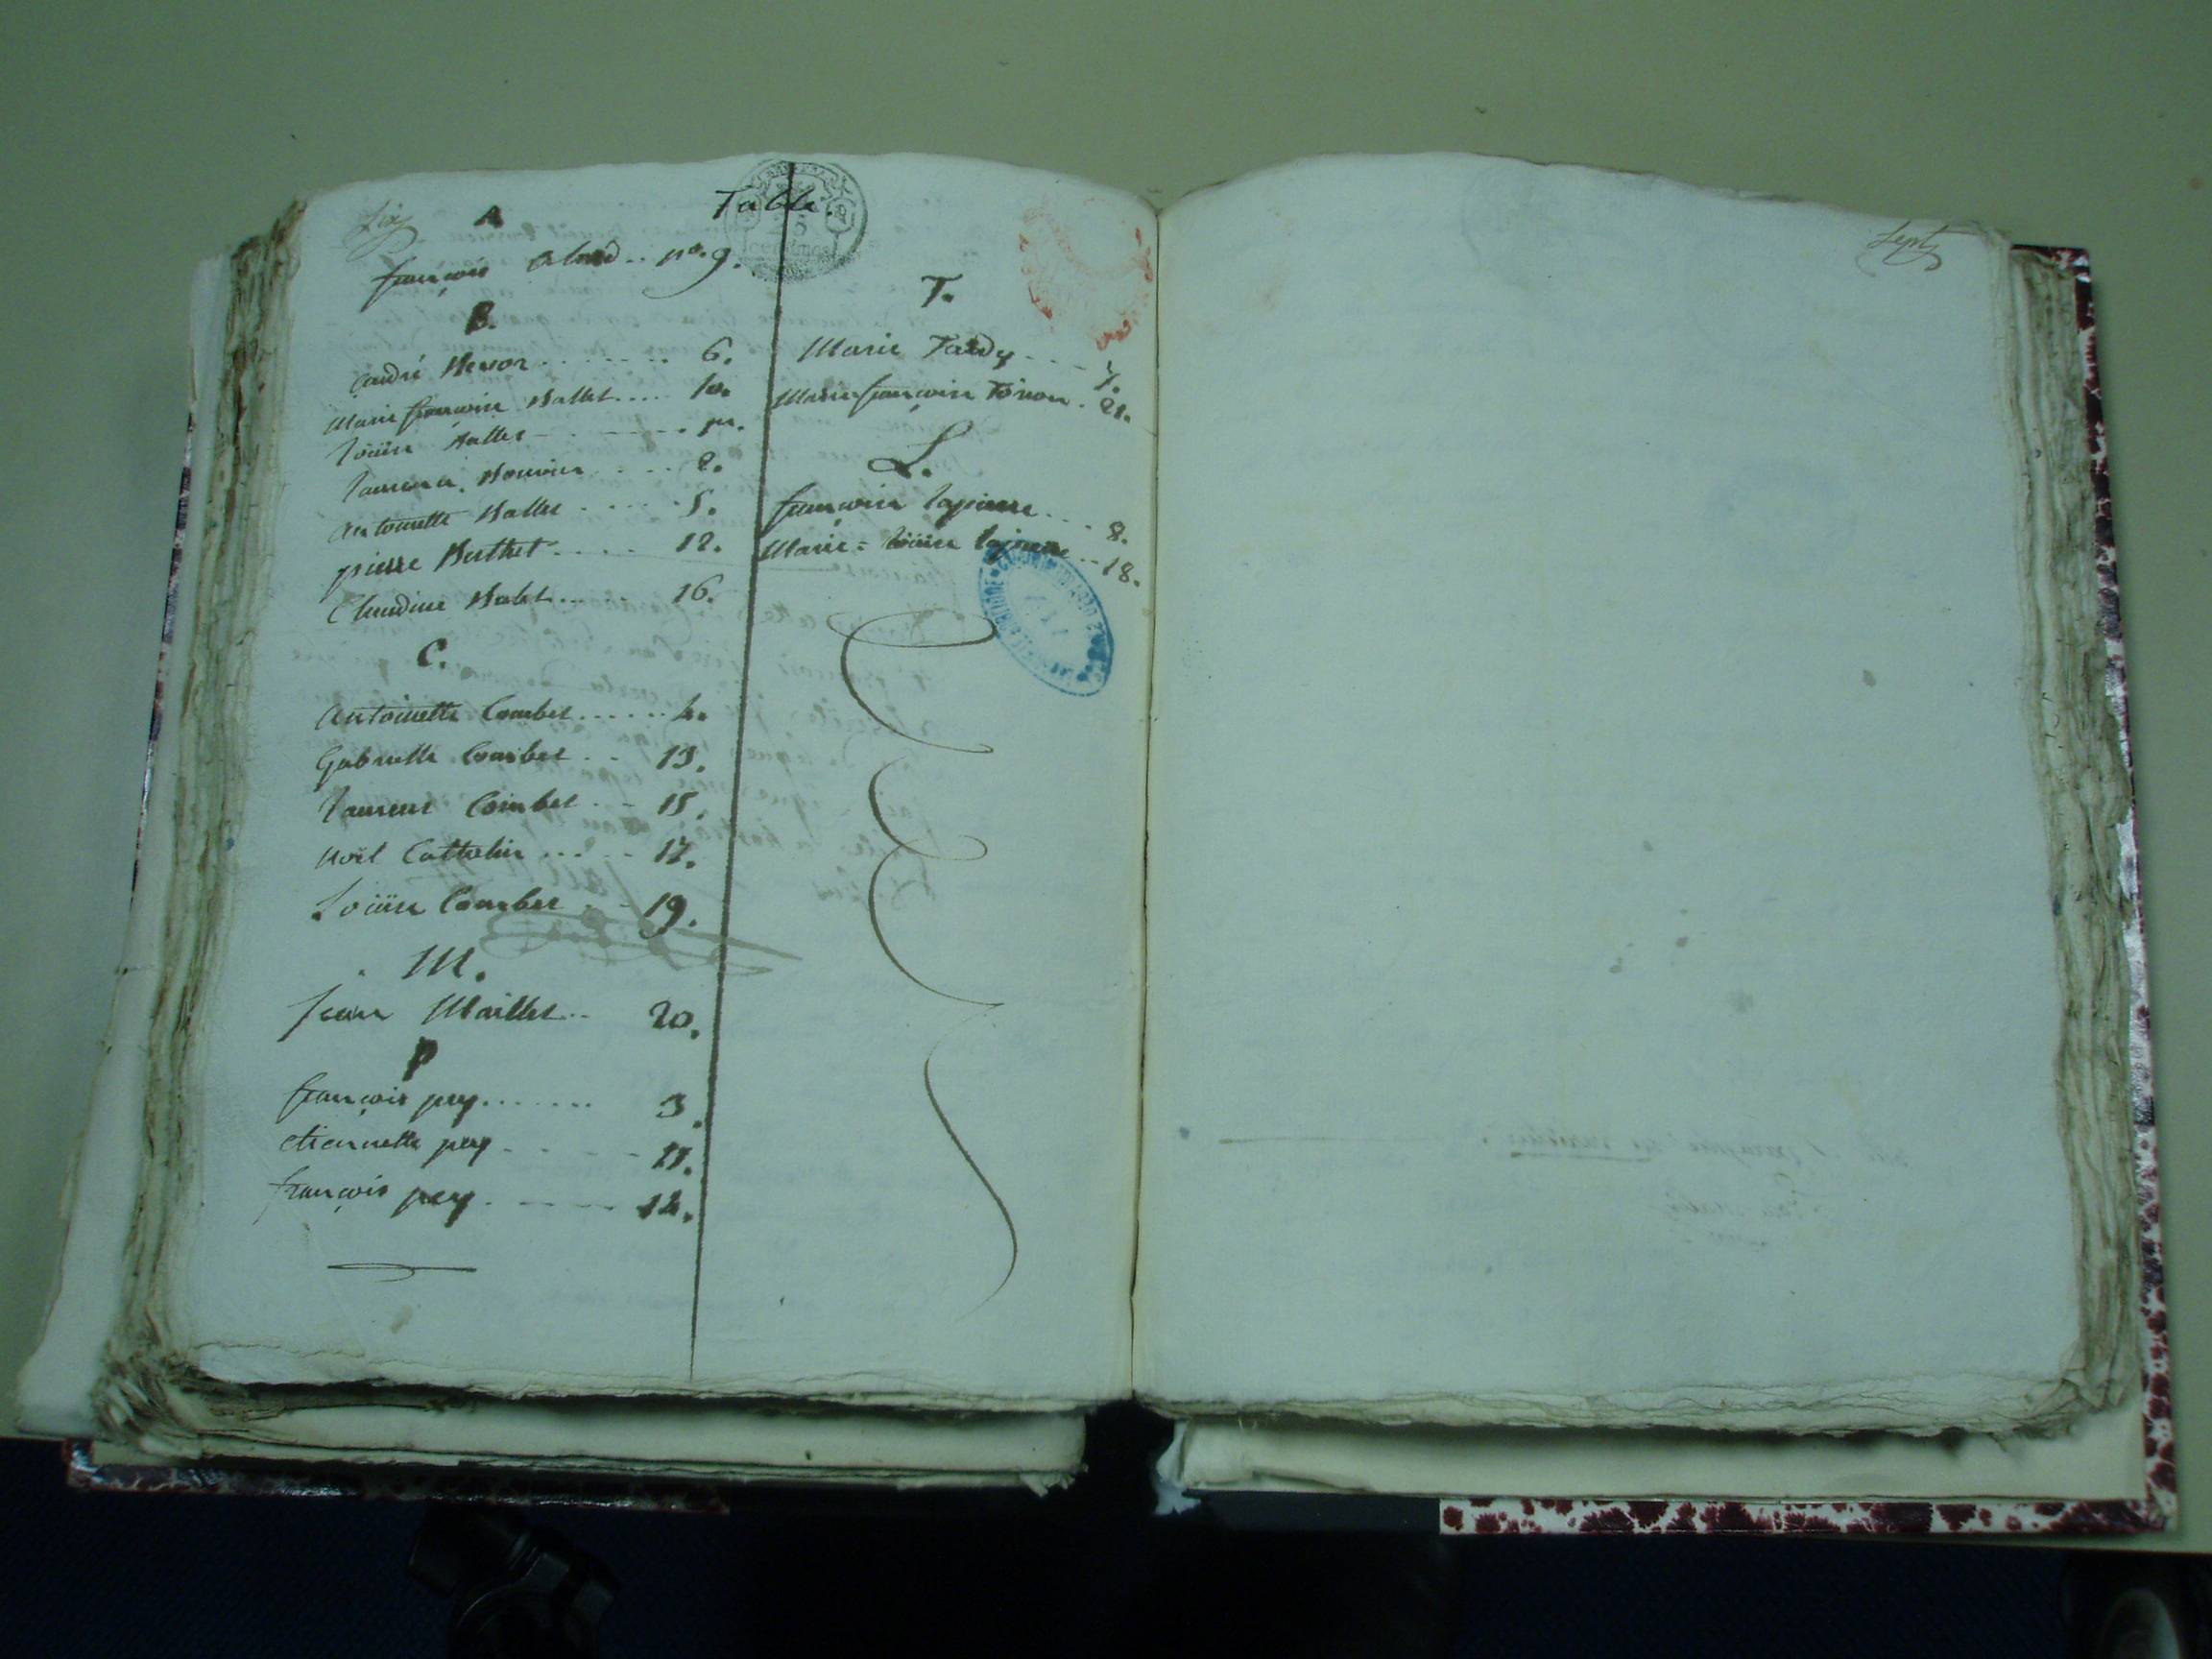 six
Table.
A
françois Abord .. no. 9.
B.
andré Benon ........ 6.
Marie françoise Ballet .... 10.
Loüise Ballet ....... pr.
Laurence Bouvier .... 2.
Antoinette Ballet ..... 5.
pierre Berthet ..... 12.
Claudine Balet ..... 16.
C.
Antoinette Combet ...... 4.
Gabrielle Combet .. 13.
Laurent Combet .. 15.
Noël Cattelin ..... 17.
Loüise Combet .. 19.
M.
Jean Maillet .. 20.
P
françois pey ....... 3.
etiennette pey ..... 11.
françois pey ..... 14.
T.
Marie Tardy .... 7.
Marie françoise . 21.
L.
françoise lapierre ... 8.
Marie = Loüise lapierre .. 18.
sept